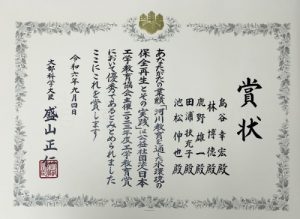 賞状
島谷幸宏殿
林博徳殿
鹿野雄一殿
田浦扶充子殿
池松伸也殿
あなたがたの業績「河川教育を通じた水環境の
保全再生とその実践」は公益社団法人日本
工学教育協会主催二〇二三年度工学教育賞
において優秀であるとみとめられました
ここにこれを賞します
令和六年九月四日
文部科学大臣 盛山正仁